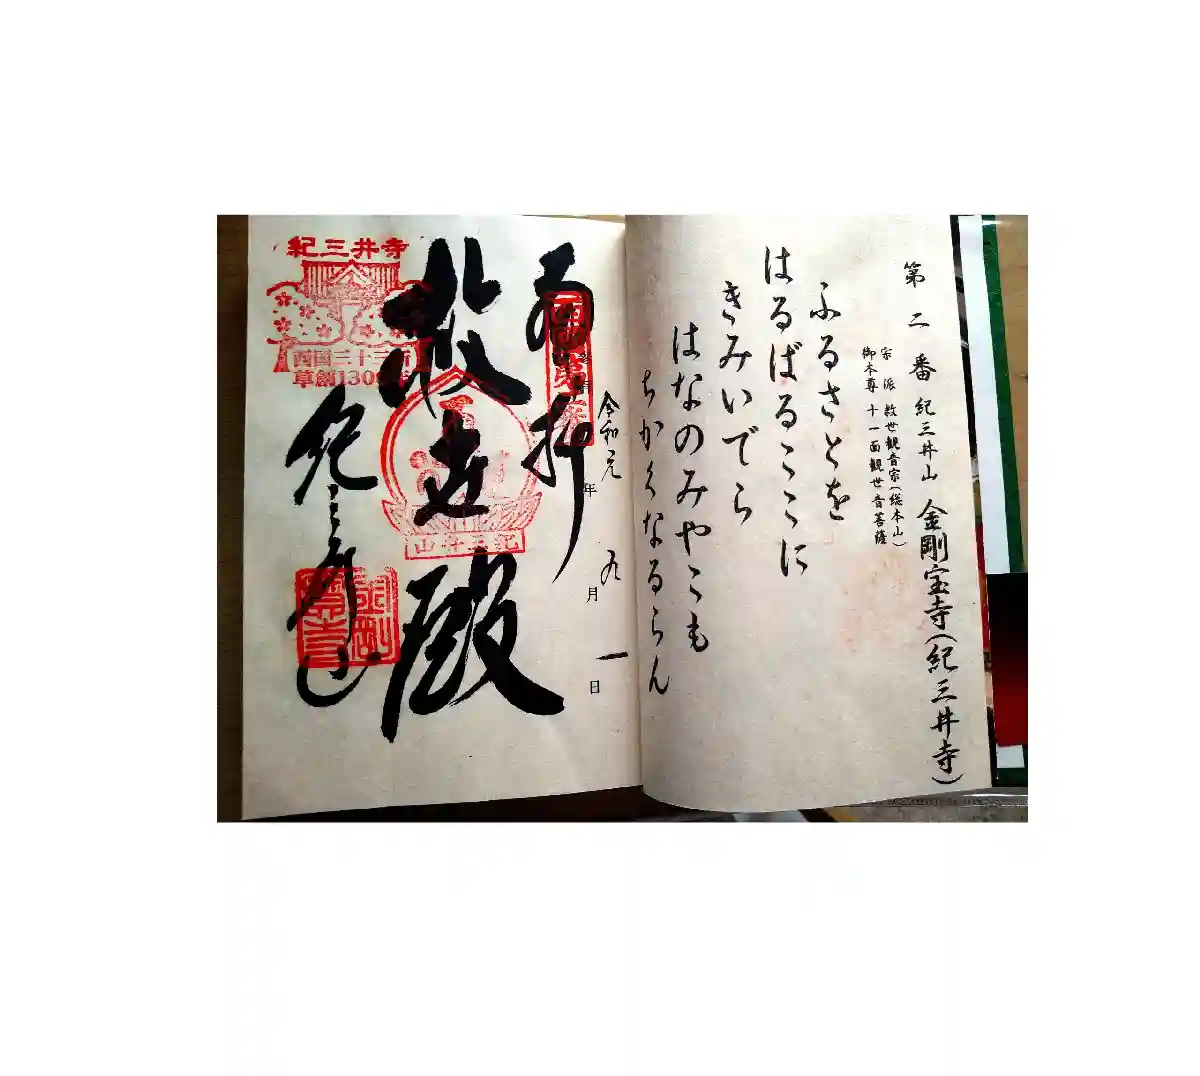 第二番 紀三井山 金剛宝寺(紀三井寺)
宗派 救世観音宗(総本山)
御本尊 十一面観世音菩薩
ふるさとを
はるばるここに
きみいでら
はなのみやこも
ちかくなるらん
令和元年 九月 一日
奉拝
救世殿
紀三井寺
西国三十三所
草創1300年
紀三井山
紀三井寺